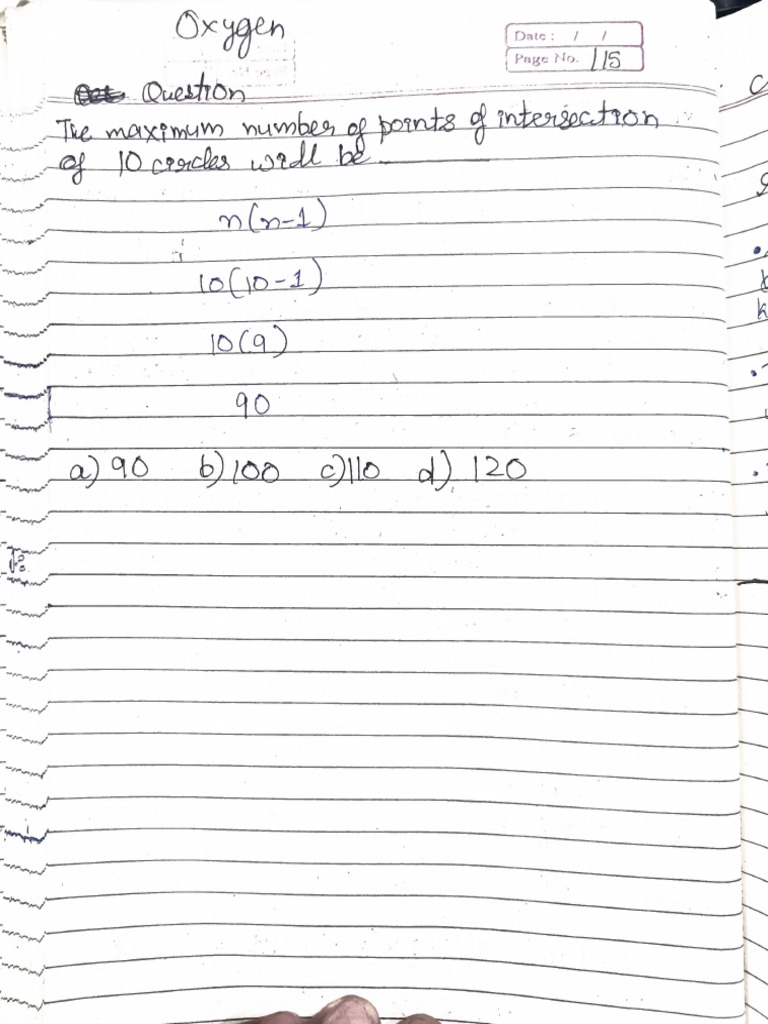 Oxygen
Date: / /
Page No. 115
Question
The maximum number of points of intersection
of 10 circles will be
n(n-1)
10(10-1)
10(9)
90
a) 90 b) 100 c) 110 d) 120